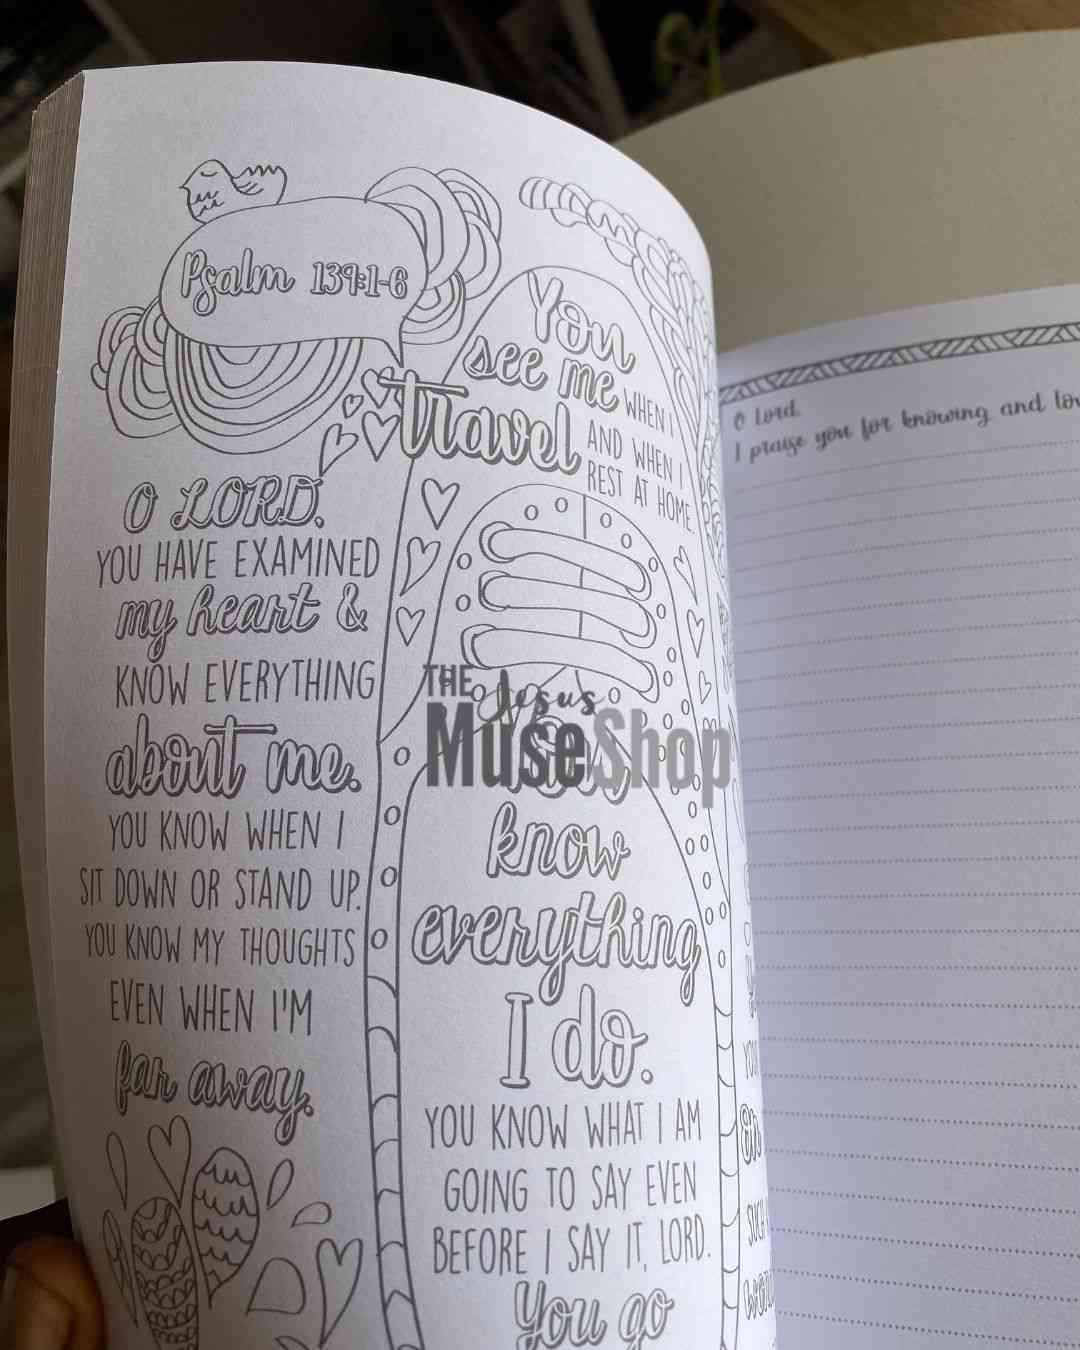 Psalm 139:1-6
O LORD,
YOU HAVE EXAMINED
my heart &
KNOW EVERYTHING
about me.
YOU KNOW WHEN I
SIT DOWN OR STAND UP.
YOU KNOW MY THOUGHTS
EVEN WHEN I'M
far away.
You
see me WHEN I
travel AND WHEN I
REST AT HOME.
know
everything
I do.
YOU KNOW WHAT I AM
GOING TO SAY EVEN
BEFORE I SAY IT, LORD.
You go
THE Jesus
MuseShop
O Lord,
I praise you for knowing and